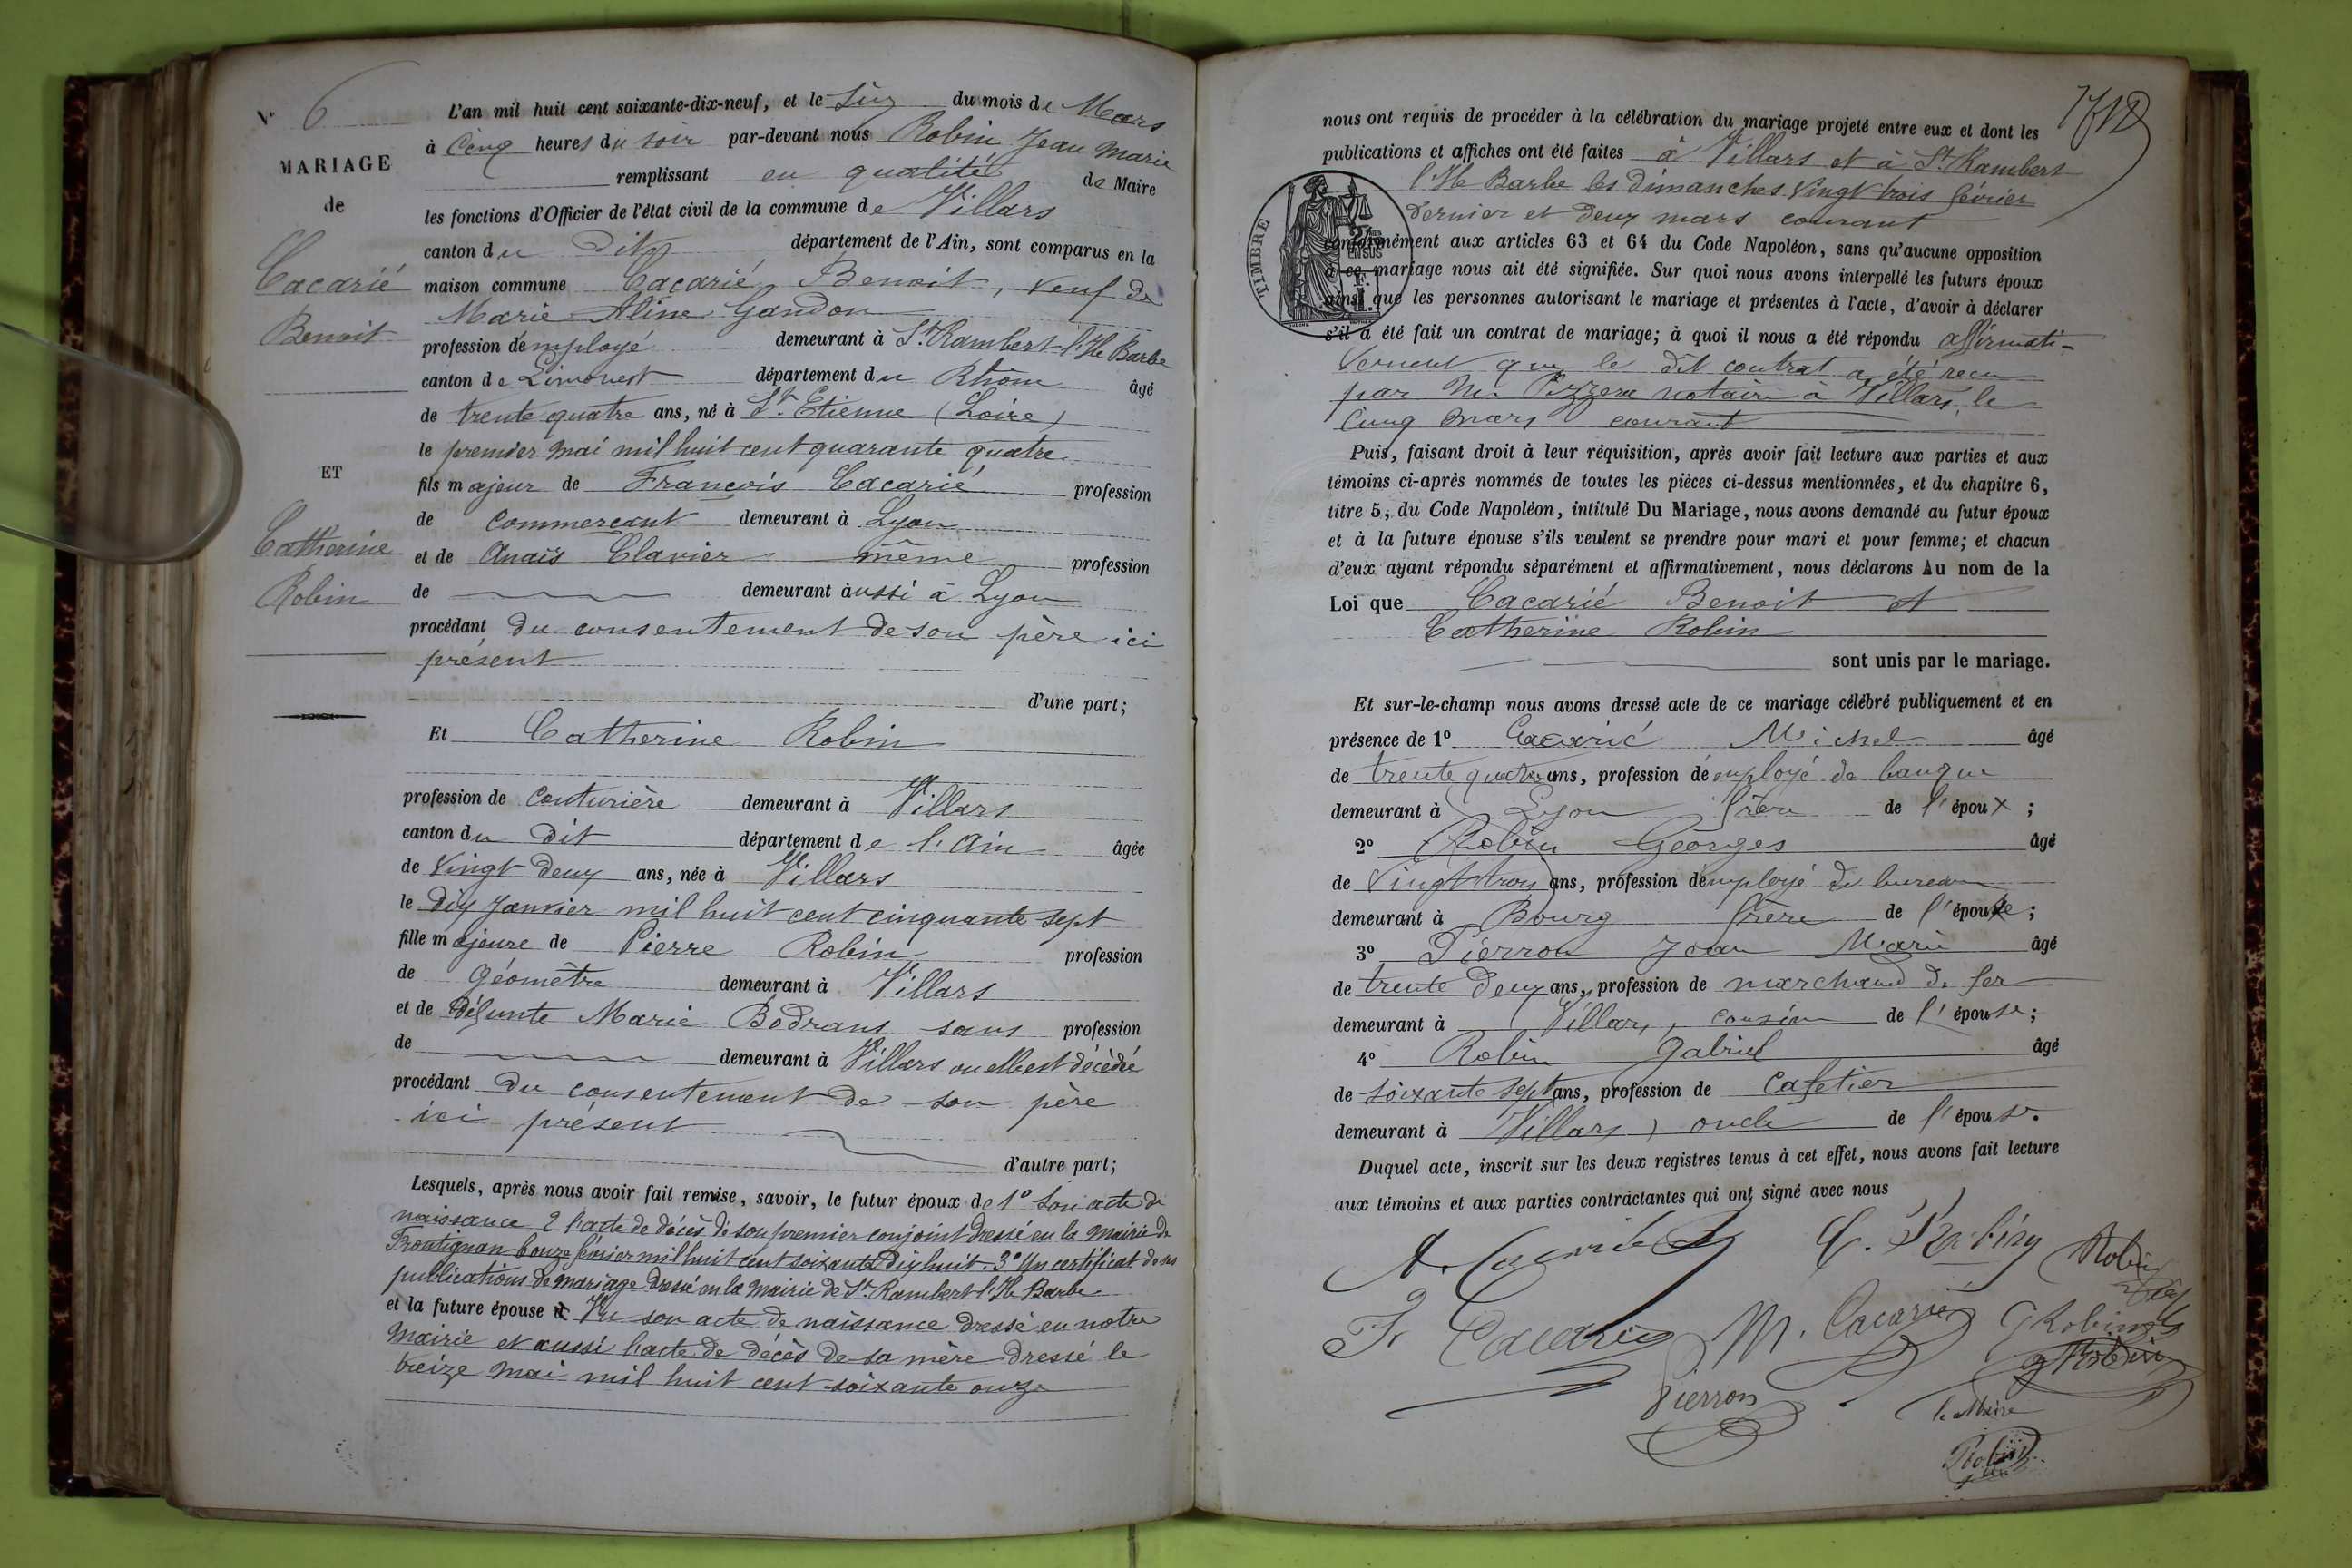 N° 6
MARIAGE
de
Cacarié
Benoit
ET
Catherine
Robin
L'an mil huit cent soixante-dix-neuf, et le Six du mois de Mars
à Cinq heures du soir par-devant nous Robin Jean Marie
remplissant en qualité de Maire
les fonctions d'Officier de l'état civil de la commune de Villars
canton du Dit département de l'Ain, sont comparus en la
maison commune Cacarié, Benoit, veuf de
Marie Aline Gandon
profession d'employé demeurant à St Rambert l'Ile Barbe
canton de Limonest département du Rhône âgé
de trente quatre ans, né à St. Etienne (Loire)
le premier mai mil huit cent quarante quatre
fils majeur de François Cacarié profession
de commerçant demeurant à Lyon
et de Anaïs Clavier même profession
de demeurant aussi à Lyon
procédant du consentement de son père ici
présent
d'une part;
Et Catherine Robin
profession de Couturière demeurant à Villars
canton du Dit département de l'Ain âgée
de Vingt deux ans, née à Villars
le Dix Janvier mil huit cent cinquante sept
fille majeure de Pierre Robin profession
de Géomètre demeurant à Villars
et de Défunte Marie Bodrans sans profession
de demeurant à Villars ou elle est décédée
procédant du consentement de son père
ici présent
d'autre part;
Lesquels, après nous avoir fait remise, savoir, le futur époux de 1° Son acte de
naissance 2 l'acte de décès de son premier conjoint dressé en la mairie de
Frontignan le onze février mil huit cent soixante Dix huit. 3° Un certificat de ses
publications de mariage dressé en la Mairie de St Rambert l'Ile Barbe
et la future épouse Vu son acte de naissance dressé en notre
Mairie et aussi l'acte de décès de sa mère dressé le
treize mai mil huit cent soixante onze
nous ont requis de procéder à la célébration du mariage projeté entre eux et dont les
publications et affiches ont été faites à Villars et à St Rambert
l'Ile Barbe les dimanches Vingt trois février
dernier et deux mars courant
TIMBRE
conformément aux articles 63 et 64 du Code Napoléon, sans qu'aucune opposition
à ce mariage nous ait été signifiée. Sur quoi nous avons interpellé les futurs époux
ainsi que les personnes autorisant le mariage et présentes à l'acte, d'avoir à déclarer
s'il a été fait un contrat de mariage; à quoi il nous a été répondu affirmati-
vement que le dit contrat a été reçu
par Me. notaire à Villars, le
Cinq mars courant
Puis, faisant droit à leur réquisition, après avoir fait lecture aux parties et aux
témoins ci-après nommés de toutes les pièces ci-dessus mentionnées, et du chapitre 6,
titre 5, du Code Napoléon, intitulé Du Mariage, nous avons demandé au futur époux
et à la future épouse s'ils veulent se prendre pour mari et pour femme; et chacun
d'eux ayant répondu séparément et affirmativement, nous déclarons Au nom de la
Loi que Cacarié Benoit et
Catherine Robin
sont unis par le mariage.
Et sur-le-champ nous avons dressé acte de ce mariage célébré publiquement et en
présence de 1° Cacarié Michel âgé
de trente quatre ans, profession d'employé de banque
demeurant à Lyon frère de l'époux ;
2° Robin Georges âgé
de Vingt trois ans, profession d'employé de bureau
demeurant à Bourg frère de l'épouse ;
3° Pierron Jean Marie âgé
de trente deux ans, profession de marchand de fer
demeurant à Villars, cousin de l'épouse;
4° Robin Gabriel âgé
de soixante sept ans, profession de Cafetier
demeurant à Villars, oncle de l'épouse.
Duquel acte, inscrit sur les deux registres tenus à cet effet, nous avons fait lecture
aux témoins et aux parties contractantes qui ont signé avec nous
C. Robin Robin
Fs Cacarié M. Cacarié G Robin
g Robin
Pierron
le Maire
Robin